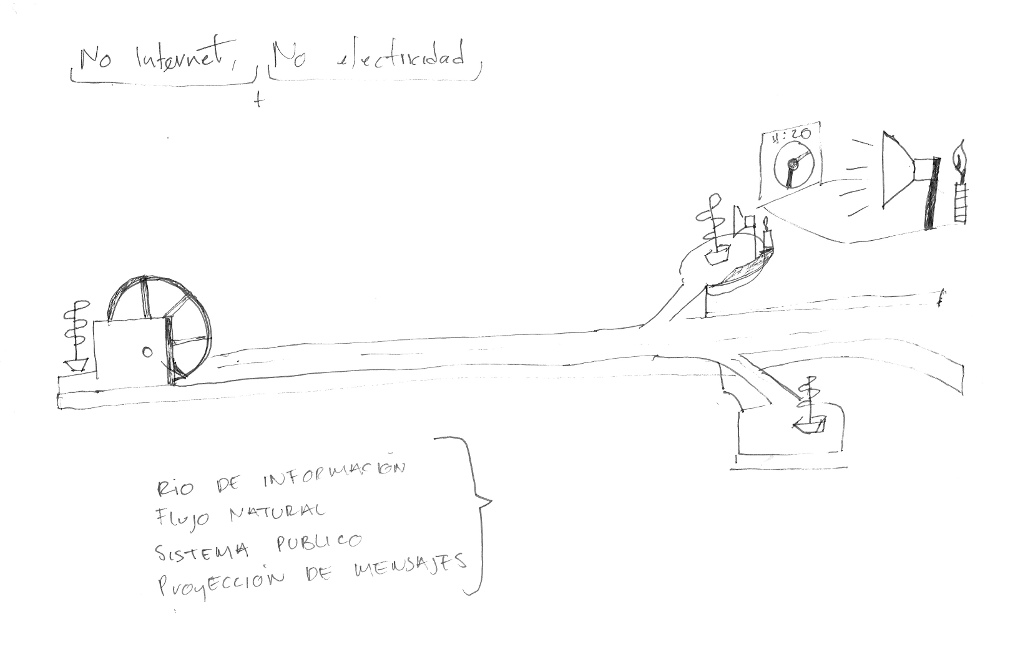 No Internet, No electricidad,
+
11:20
RIO DE INFORMACIÓN
Flujo NATURAL
SISTEMA PUBLICO
PROYECCIÓN DE MENSAJES